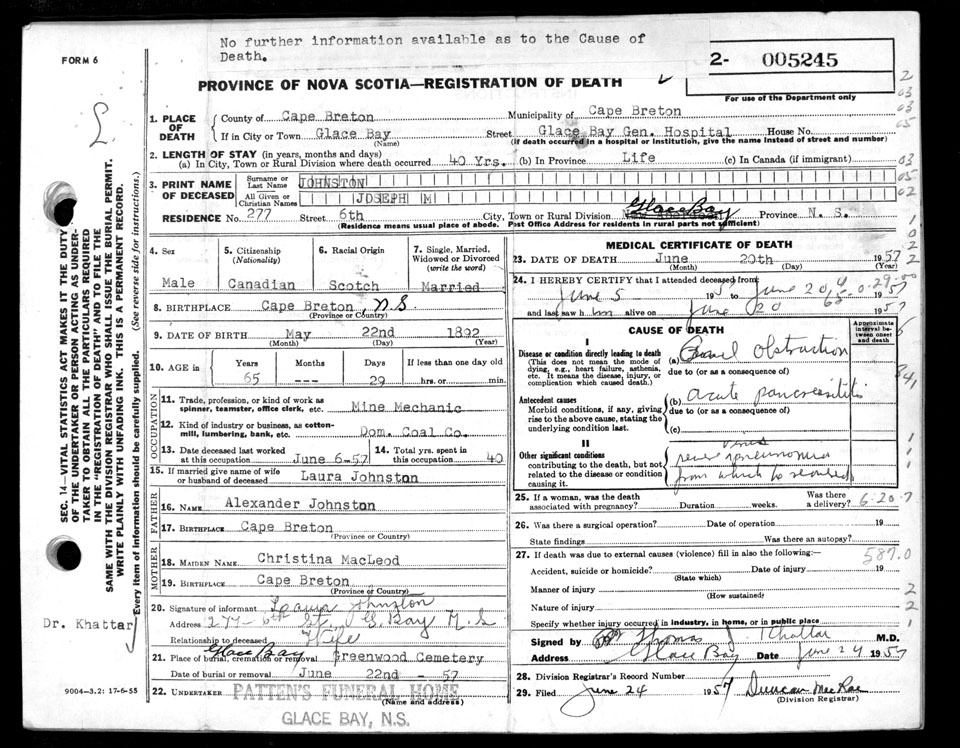 No further information available as to the Cause of
Death.
FORM 6
2- 005245
For use of the Department only
PROVINCE OF NOVA SCOTIA—REGISTRATION OF DEATH
1. PLACE OF DEATH
County of Cape Breton Municipality of Cape Breton
If in City or Town Glace Bay (Name) Street Glace Bay Gen. Hospital House No.
(If death occurred in a hospital or Institution, give the name instead of street and number)
2. LENGTH OF STAY (in years, months and days)
(a) In City, Town or Rural Division where death occurred 40 Yrs. (b) In Province Life (c) In Canada (if immigrant)
3. PRINT NAME OF DECEASED
Surname or Last Name JOHNSTON
All Given or Christian Names JOSEPH M
RESIDENCE No. 277 Street 6th City, Town or Rural Division Glace Bay Province N. S.
(Residence means usual place of abode. Post Office Address for residents in rural parts not sufficient)
4. Sex
Male
5. Citizenship (Nationality)
Canadian
6. Racial Origin
Scotch
7. Single, Married, Widowed or Divorced (write the word)
Married
8. BIRTHPLACE Cape Breton N.S
(Province or Country)
9. DATE OF BIRTH May 22nd 1892
(Month) (Day) (Year)
10. AGE in
Years Months Days If less than one day old
65 --- 29 hrs. or min.
OCCUPATION
11. Trade, profession, or kind of work as spinner, teamster, office clerk, etc. Mine Mechanic
12. Kind of industry or business, as cotton-mill, lumbering, bank, etc. Dom. Coal Co.
13. Date deceased last worked at this occupation June 6-57
14. Total yrs. spent in this occupation 40
15. If married give name of wife or husband of deceased Laura Johnston
FATHER
16. NAME Alexander Johnston
17. BIRTHPLACE Cape Breton
(Province or Country)
MOTHER
18. MAIDEN NAME Christina MacLeod
19. BIRTHPLACE Cape Breton
(Province or Country)
20. Signature of informant Laura Johnston
Address 277-6th St. G. Bay N.S
Relationship to deceased Wife
21. Place of burial, cremation or removal Glace Bay Greenwood Cemetery
Date of burial or removal June 22nd - 57
22. UNDERTAKER PATTEN'S FUNERAL HOME
(Name and address)
GLACE BAY, N.S.
MEDICAL CERTIFICATE OF DEATH
23. DATE OF DEATH June 20th 1957
(Month) (Day) (Year)
24. I HEREBY CERTIFY that I attended deceased from
June 5 1957 June 20 1957
and last saw him alive on June 20 1957
CAUSE OF DEATH
Approximate interval between onset and death
I
Disease or condition directly leading to death
(This does not mean the mode of dying, e.g., heart failure, asthenia, etc. It means the disease, injury, or complication which caused death.)
(a) Bowel obstruction
due to (or as a consequence of)
Antecedent causes
Morbid conditions, if any, giving rise to the above cause, stating the underlying condition last.
(b) acute pancreatitis
due to (or as a consequence of)
(c)
II
Other significant conditions
contributing to the death, but not related to the disease or condition causing it.
virus
pneumonia
from which he
25. If a woman, was the death associated with pregnancy? Duration weeks. Was there a delivery? 6-20-7
26. Was there a surgical operation? Date of operation 19
State findings Was there an autopsy?
27. If death was due to external causes (violence) fill in also the following: 587.0
Accident, suicide or homicide? Date of injury 19
(State which)
Manner of injury
(How sustained)
Nature of injury
Specify whether injury occurred in industry, in home, or in public place
Signed by Dr Thomas J. Khattar M.D.
Address Glace Bay Date June 24 1957
28. Division Registrar's Record Number
29. Filed June 24 1957 Duncan MacRae
(Division Registrar)
SEC. 14—VITAL STATISTICS ACT MAKES IT THE DUTY
OF THE UNDERTAKER OR PERSON ACTING AS UNDER-
TAKER TO OBTAIN ALL THE PARTICULARS REQUIRED
IN THE "REGISTRATION OF DEATH" AND TO FILE THE
SAME WITH THE DIVISION REGISTRAR WHO SHALL ISSUE THE BURIAL PERMIT.
WRITE PLAINLY WITH UNFADING INK. THIS IS A PERMANENT RECORD.
Every item of information should be carefully supplied. (See reverse side for instructions.)
Dr. Khattar
9004—3.2: 17-6-55